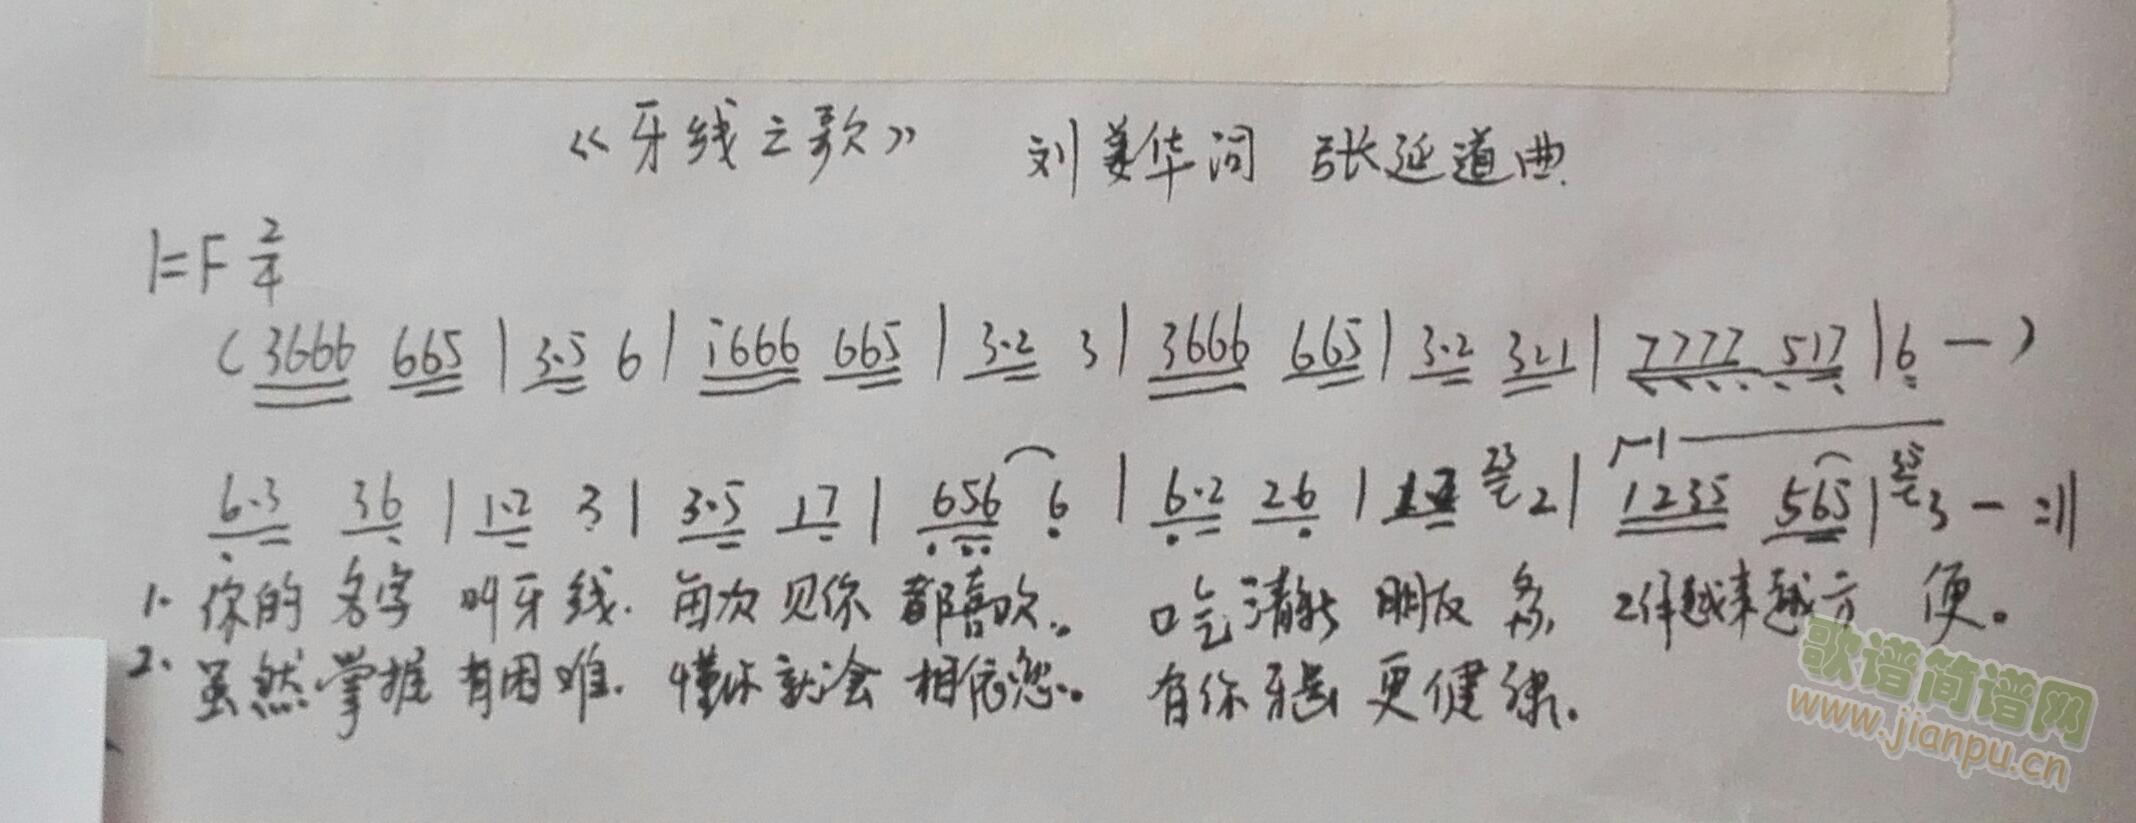 《牙线之歌》 刘姜华词 张延道曲
1=F 2/4
(3666 665 | 3·5 6 | i666 665 | 3·2 3 | 3666 665 | 3·2 321 | 7777 517 | 6 — )
6·3 36 | 1·2 3 | 3·5 17 | 656 6 | 6·2 26 | 12 23 2 | 1235 565 | 35 3 — :||
1. 你的名字 叫牙线. 每次见你 都喜欢。 吃清 朋友多, 工作越来越方便。
2. 虽然掌握 有困难. 懂你就会 相依恋。 有你牙齿 更健康。
歌谱简谱网
www.jianpu.cn